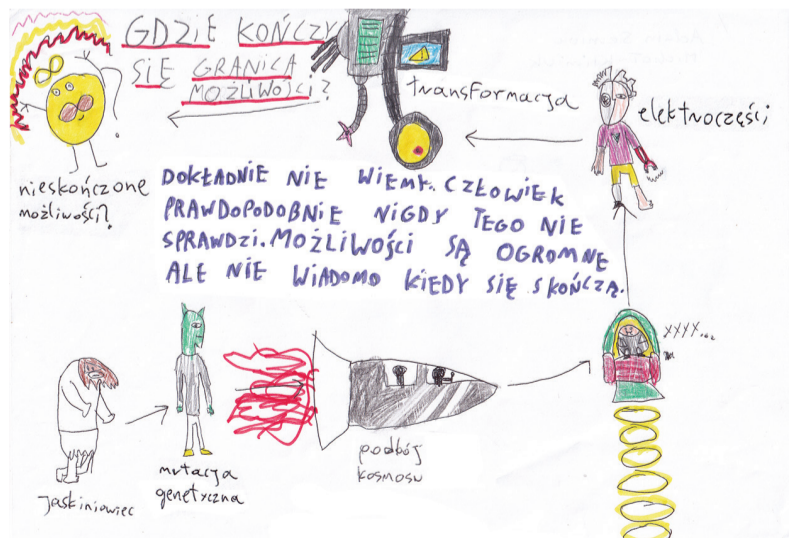 GDZIE KOŃCZY
SIĘ GRANICA
MOŻLIWOŚCI?
transformacja
elektroczęści
nieskończone
możliwości?
DOKŁADNIE NIE WIEMY. CZŁOWIEK
PRAWDOPODOBNIE NIGDY TEGO NIE
SPRAWDZI. MOŻLIWOŚCI SĄ OGROMNE
ALE NIE WIADOMO KIEDY SIĘ SKOŃCZĄ.
jaskiniowiec
mutacja
genetyczna
podbój
kosmosu